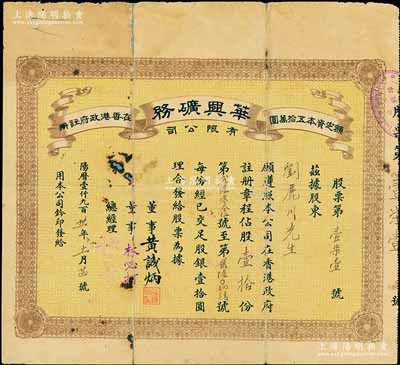 上海陽明拍賣
www.ymauction.com
華興礦務
有限公司
額定資本五拾萬圓
在香港政府註冊
股票第壹柒壹號
茲據股東
劉鹿川先生
願遵照本公司在香港政府
註冊章程佔股壹拾份
第 號至第 號
每份經已交足股銀壹拾圓
理合發給股票為據
董事黃誠炳
董事
總經理
陽曆壹仟九百 年 月 號
用本公司鈐印發給
股票第
上海陽明拍賣
www.ymauction.com